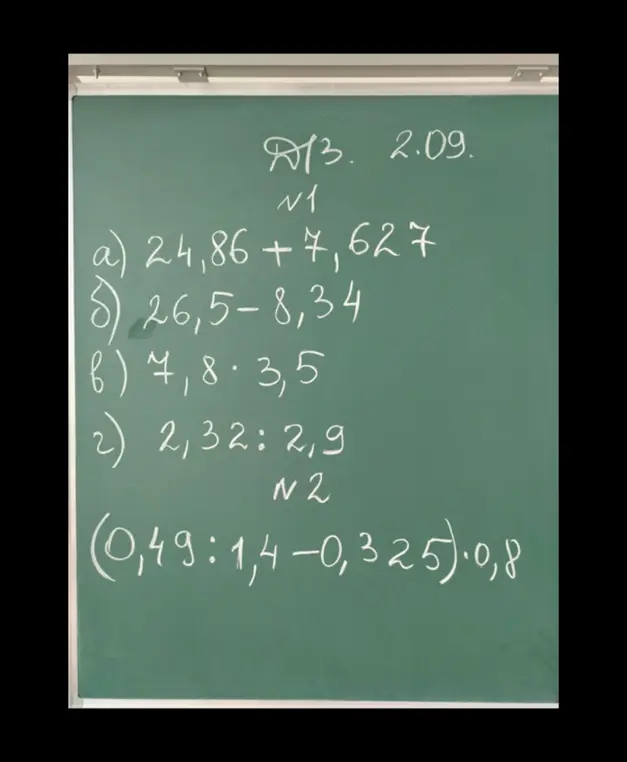 Д/З. 2.09.
N1
а) 24,86 + 7,627
б) 26,5 - 8,34
в) 7,8 · 3,5
г) 2,32 : 2,9
N 2
(0,49 : 1,4 - 0,325) · 0,8